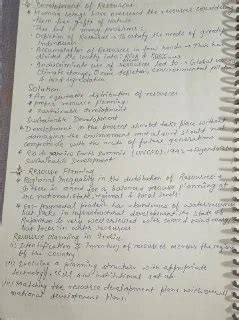 Development of Resources
Human beings have considered the resources
were free gifts of nature
This led to many problems:
Depletion of Resources to satisfy the needs of greed of
Individuals
Accumulation of Resources in few hands → This has
divided the society into Rich & Poor
Indiscriminate use of resources led to → Global
Climate change, Ozone depletion, environmental pollution
& land degradation
Solution
An equitable distribution of resources
proper resource planning
Sustainable Development
Sustainable Development
Development in the present should take place without
damaging the environment and should not
compromise with the needs of future generations
Rio de Janeiro Earth Summit (UNCED), 1992 → Agenda
Sustainable Development
Resource Planning
Regional Inequality in the distribution of Resources →
there is need for a balance resource planning at
the national, state, regional & local levels
Eg:- Arunachal Pradesh has abundance of water resources
but lacks in infrastructural development. The state of
Rajasthan is very well endowed with solar & wind energy
but lacks in water resources
Resource planning in India
(i) Identification & Inventory of resources across the regions
of the country
(ii) Evolving a planning structure with appropriate
technology, skill and institutional set up
(iii) Matching the resource development plans with overall
national development plans.